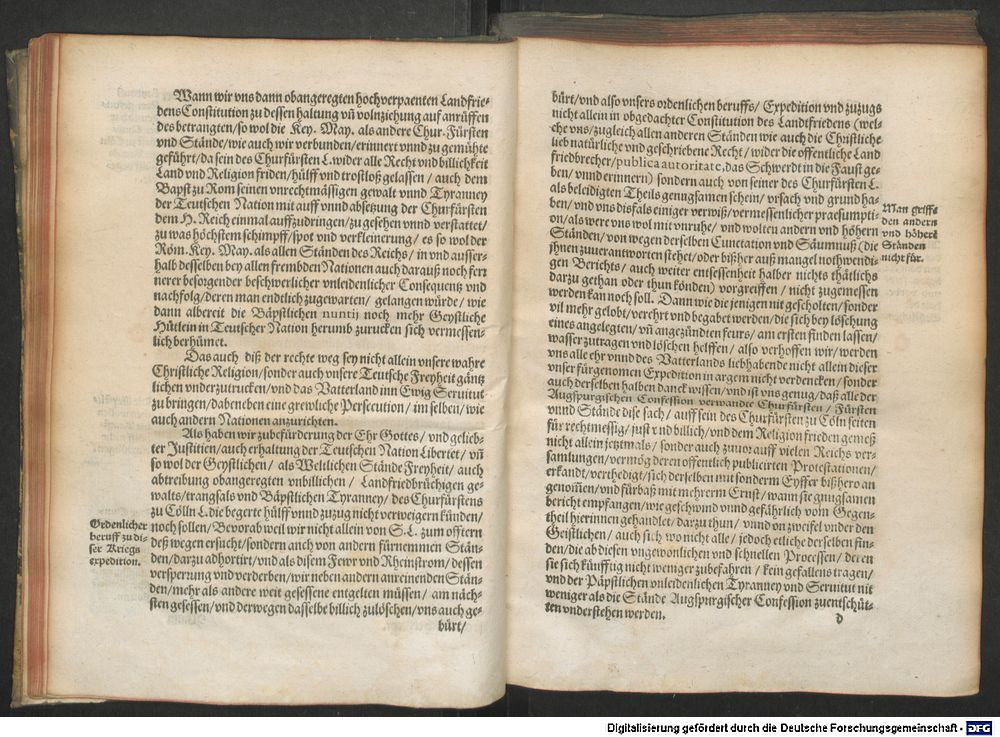 Wann wir vns dann obangeregten hochverpaenten Landfrie-
dens Constitution zu dessen haltung vñ volnziehung auf anrüffen
des betrangten/so wol die Key. May. als andere Chur. Fürsten
vnd Stände/wie auch wir verbunden/erinnert vnnd zu gemühte
geführt/da sein des Churfürsten L. wider alle Recht vnd billichkeit
Land vnd Religion friden/hülff vnd trostloß gelassen/ auch dem
Bapst zu Rom seinen vnrechtmässigen gewalt vnnd Tyranney
der Teutschen Nation mit auff vnnd absetzung der Churfürsten
dem H. Reich einmal auffzudringen/zu gesehen vnnd verstattet/
zu was höchstem schimpff/spot vnd verkleinerung/ es so wol der
Röm. Key. May. als allen Ständen des Reichs/ in vnd ausser-
halb desselben bey allen frembden Nationen auch darauß noch fert
nerer besorgender beschwerlicher vnleidenlicher Consequentz vnd
nachfolg/deren man endlich zugewarten/ gelangen würde/ wie
dann albereit die Bäpstlichen nuntij noch mehr Geystliche
Hütlein in Teutscher Nation herumb zurucken sich vermessen-
lich berhümet.
Das auch diß der rechte weg sey nicht allein vnsere wahre
Christliche Religion/sonder auch vnsere Teutsche Freyheit gäntz
lichen vnderzutrucken/vnd das Vatterland inn Ewig Seruitut
zu bringen/dabeneben eine grewliche Persecution/ im selben/wie
auch andern Nationen anzurichten.
Als haben wir zubefürderung der Ehr Gottes/ vnd gelieb-
ter Justitien/auch erhaltung der Teutschen Nation Libertet/ vñ
so wol der Geystlichen/ als Weltlichen Stände Freyheit/ auch
abtreibung obangeregten vnbillichen/ Landfriedbrüchigen ge-
walts/trangsals vnd Bäpstlichen Tyranney/ des Churfürstens
zu Cölln L. die begerte hülff vnnd zuzug nicht verweigern künden/
noch sollen/ Bevorab weil wir nicht allein von S. L. zum offtern
deß wegen ersucht/sondern auch von andern fürnemmen Stän-
den/darzu adhortirt/vnd als disem Fewr vnd Rheinstrom/dessen
versperung vnd verderben/wir neben andern anreinenden Stän-
den/mehr als andere weit gesessene entgelten müssen/ am näch-
sten gesessen/vnd derwegen dasselbe billich zulöschen/vns auch ge-
bürt/
Ordenlicher
beruff zu di-
ser Kriegs
expedition.
bürt/vnd also vnsers ordenlichen beruffs/ Expedition vnd zuzugs
nicht allein in obgedachter Constitution des Landtfriedens (wel-
che vns/zugleich allen anderen Ständen wie auch die Christliche
lieb natürliche vnd geschriebene Recht/ wider die offentliche Land
friedbrecher/publica autoritate, das Schwerdt in die Faust ge-
ben/ vnnd erinnern) sondern auch von seiner des Churfürsten L.
als beleidigten Theils genugsamen schein/ vrsach vnd grund ha-
ben/ vnd vns disfals einiger verwiß/vermessenlicher praesumpti-
on/als were vns wol mit vnruhe/ vnd wolten andern vnd höhern
Ständen/ von wegen derselben Cunctation vnd Säumnuß (die
jhnen zuuerantworten stehet/oder bißher auß mangel nothwendi-
gen Berichts/ auch weiter entsessenheit halber nichts thätlichs
darzu gethan oder thun könden) vorgreiffen / nicht zugemessen
werden kan noch soll. Dann wie die jenigen nit gescholten/sonder
vil mehr gelobt/verehrt vnd begabet werden/die sich bey löschung
eines angelegten/ vñ angezündten feurs/ am ersten finden lassen/
wasser zutragen vnd löschen helffen/ also verhoffen wir/ werden
vns alle ehr vnnd des Vatterlands liebhabende nicht allein dieser
vnser fürgenomen Expedition in argem nicht verdencken/ sonder
auch derselben halben danck wissen/vnd ist vns genug/daß alle der
Augspurgischen Confession verwandte Churfürsten / Fürsten
vnnd Stände dise sach/ auff sein des Churfürsten zu Cöln seiten
für rechtmessig/ just vnd billich/ vnd dem Religion frieden gemeß
nicht allein jetztmals/ sonder auch zuuor auff vielen Reichs ver-
samlungen/vermög deren offentlich publicirten Protestationen/
erkandt/ verthedigt/sich derselben mit sonderm Eyffer bißhero an
genom̃en/ vnd fürbaß mit mehrerm Ernst/ wann sie gnugsamen
bericht empfangen/ wie geschwind vnnd gefährlich vom Gegen-
theil hierinnen gehandlet/ darzu thun/ vnnd on zweifel vnder den
Geistlichen/ auch sich wo nicht alle/ jedoch etliche derselben fin-
den/die ab diesen vngewonlichen vnd schnellen Processen/ deren
sie sich künfftig nicht weniger zubefahren / kein gefallens tragen/
vnd der Päpstlichen vnleidenlichen Tyranney vnd Seruitut nit
weniger als die Stände Augspurgischer Confession zuentschüt-
ten vnderstehen werden.
d
Man griffe
den andern
vnd höherē
Ständen
nicht für.
Digitalisierung gefördert durch die Deutsche Forschungsgemeinschaft - DFG